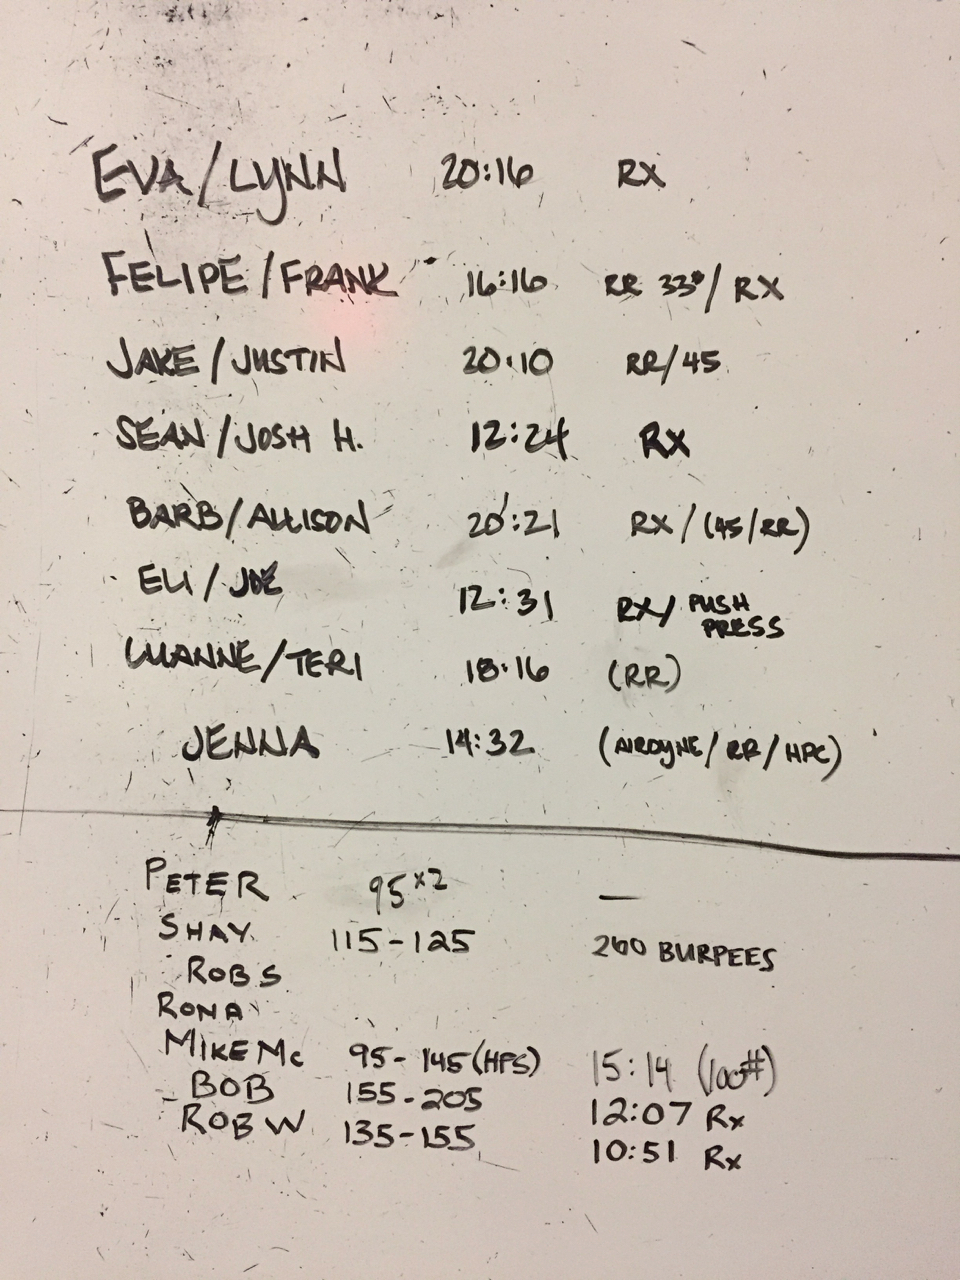 EVA/LYNN 20:16 RX
FELIPE/FRANK 16:16 RR 33#/RX
JAKE/JUSTIN 20:10 RR/45
SEAN/JOSH H. 12:24 RX
BARB/ALLISON 20:21 RX/(45/RR)
ELI/JOE 12:31 RX/PUSH PRESS
LUANNE/TERI 18:16 (RR)
JENNA 14:32 (AIRDYNE/RR/HPC)
PETER 95x2 —
SHAY 115-125 260 BURPEES
ROB S
RONA
MIKE Mc 95-145(HPS) 15:14 (100#)
BOB 155-205 12:07 Rx
ROB W 135-155 10:51 Rx